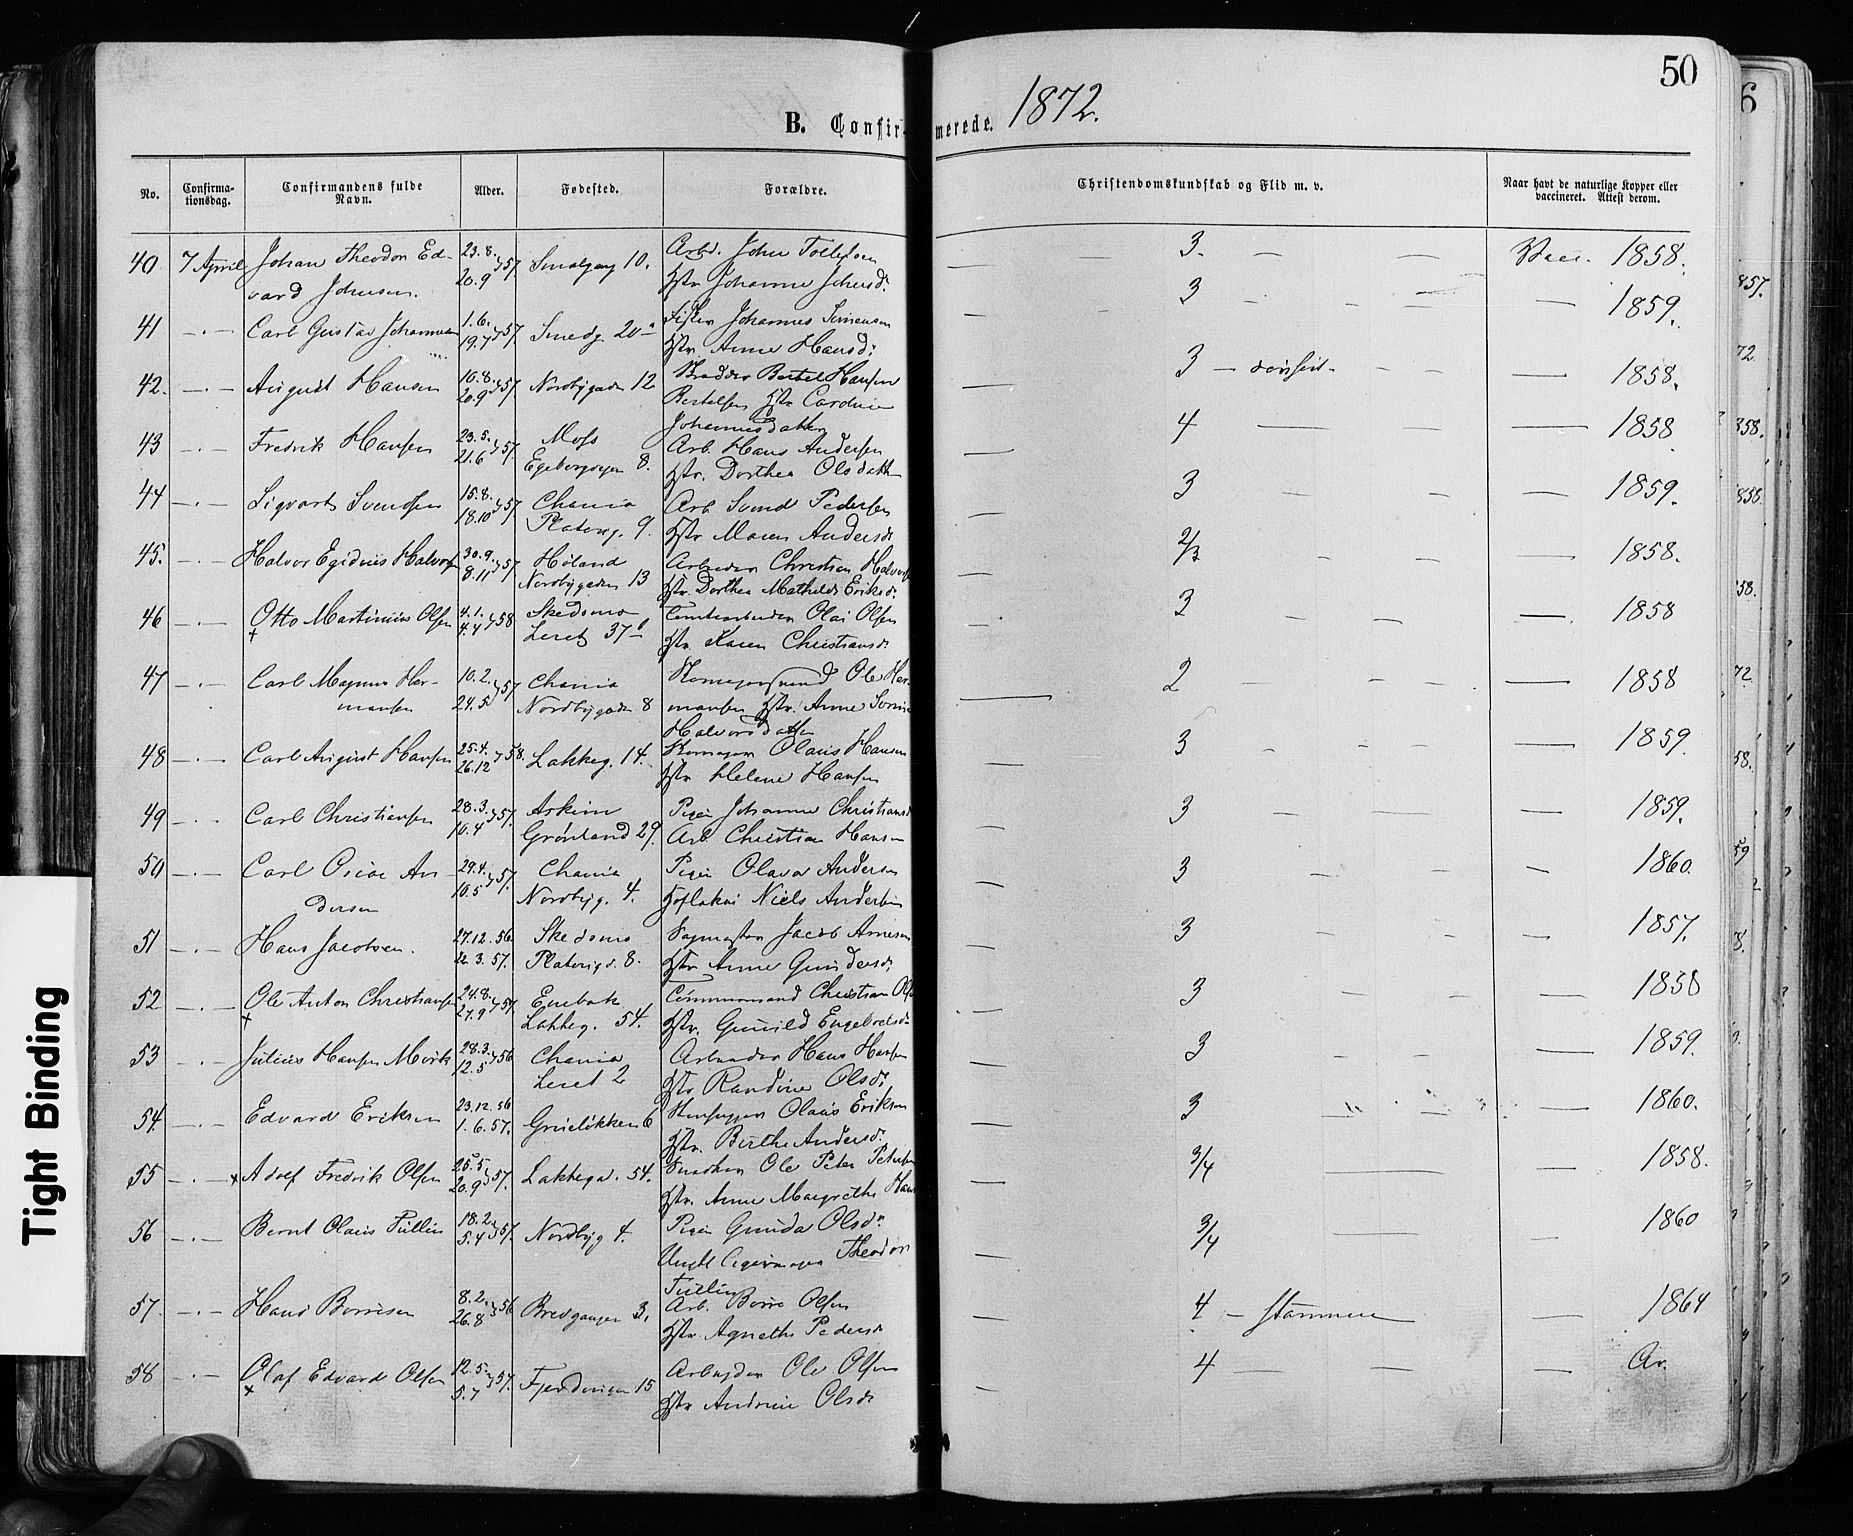 50
6
1872.
B. Confirmerede.
No. Confirmationsdag. Confirmandens fulde Navn. Alder. Fødested. Forældre. Christendomskundskab og Flid m. v. Naar havt de naturlige Kopper eller vaccineret. Attest derom.
40 7 April Johan Theodor Ed- 23.8. 57. Smalgang 10. Arbd. Johan Tollefsen 3. — — Vacc. 1858.
vard Johnsen. 20.9 Hstr Johanne Johnsd.
41 — . — Carl Gustav Johannesen 1.6. 57. Smedg. 20 Fisker Johannes Simensen 3 — — — 1859.
19.7 Hstr. Anne Hansd.
42. — . — August Hansen 10.8. 57. Nordbygaden 12 Bertel Hansen 3 — — — 1858.
20.9 Bertelsen Hstr
Johannesdatter
43 — . — Fredrik Hansen 23.5. 57. Moss Arb. Hans Andersen 4 — — — 1858
21.6 Egebergveien 8. Hstr. Dorthea Olsdatt
44 — . — Sigvart Svendsen 15.8. 57 Chania Arb Svend Pedersen 3 — — — 1859.
18.10 Platoug. 9. Hstr Maren Andersd
45. — . — Halvor Egidius Halvors 30.9. 57 Høland Arbeider Christian Halvors 2/3 — — — 1858.
8.11 Nordbygaden 13 Hstr. Dorthea Mathilde Eriksd.
46 — . — Otto Martinius Olsen 4.1. 58 Skedsmo Olai Olsen 3 — — — 1858
+ 4.4 Leret 37 Hstr Karen Christiansd.
47 — . — Carl Magnus Her- 10.2. 57. Chania Ole Her- 2 — — — 1858
mansen 24.5 Nordbygaden 8 mansen Hstr. Anne
Halvorsdatter
48 — . — Carl August Hansen 25.4. 58. Lakkeg. 14. Olaus Hansen 3 — — — 1859.
26.12 Hstr Helene Hansen
49 — . — Carl Christiansen 28.3. 57. Askim Pigen Johanne Christiansd 3 — — — 1859.
10.4 Grønland 29. Arb. Christian Hansen
50 — . — Carl Oscar An- 29.4. 57. Chania Pigen Olava Andersen 3 — — — 1860.
dersen 10.5 Nordbyg. 4. Hoflakai Niels Andersen
51 — . — Hans Jacobsen. 27.12.56. Skedsmo Sagmester Jacob Arnesen 3 — — — 1857.
22.3.57. Platougd. 8. Hstr Anne Gundersd.
52 — . — Ole Anton Christiansen 24.8. 57. Enebak Tømmermand Christian Ols 3 — — — 1858
+ 27.9 Lakkeg. 54. Hstr. Gunild Engebretsd
53 — . — Julius Hansen Mørk 28.3. 56 Chania Arbeider Hans Hansen 3 — — — 1859.
12.5 Leret 2 Hstr Randine Olsd.
54. — . — Edvard Eriksen 23.12.56 Grueløkken 6 Olaus Eriksen 3 — — 1860.
1.6.57. Hstr. Birthe Andersd.
55 — . — x Adolf Fredrik Olsen 25.5. 57. Lakkegd. 54. Snedker Ole Peter Petersen 3/4 — — 1858.
20.9 Hstr. Anne Margrethe Hans
56 — . — Bernt Olaus Tullin 18.2. 57. Nordbyg 4. Pigen Gunda Olsd. 3/4 — — 1860
5.4 Ungk. Cigarmager Theodor
Tullin
57. — . — Hans Borresen 8.2. 56 Bredgangen 3. Arb. Borre Olsen 4 — stammer — 1864
26.8 Hstr. Agnethe Pedersd
58 — . — Olaf Edvard Olsen 12.5. 57. Fjerdingen 15 Arbeider Ole Olsen 4 — — — Ar.
+ 5.7 Hstr Andrine Olsd
Tight Binding